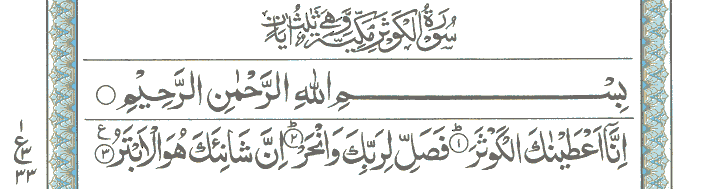 سُوۡرَةُ الۡكَوۡثَرِ مَكِّيَّةٌ وَّهِيَ ثَلٰثُ اٰيَاتٍ
بِسۡمِ اللهِ الرَّحۡمٰنِ الرَّحِيۡمِ ○
اِنَّاۤ اَعۡطَيۡنٰكَ الۡكَوۡثَرَ ؕ‏﴿۱﴾ فَصَلِّ لِرَبِّكَ وَانۡحَرۡ ؕ‏﴿۲﴾ اِنَّ شَانِئَكَ هُوَ الۡاَبۡتَرُ ‏﴿۳﴾ ع
۱
ع
۳
۳۳